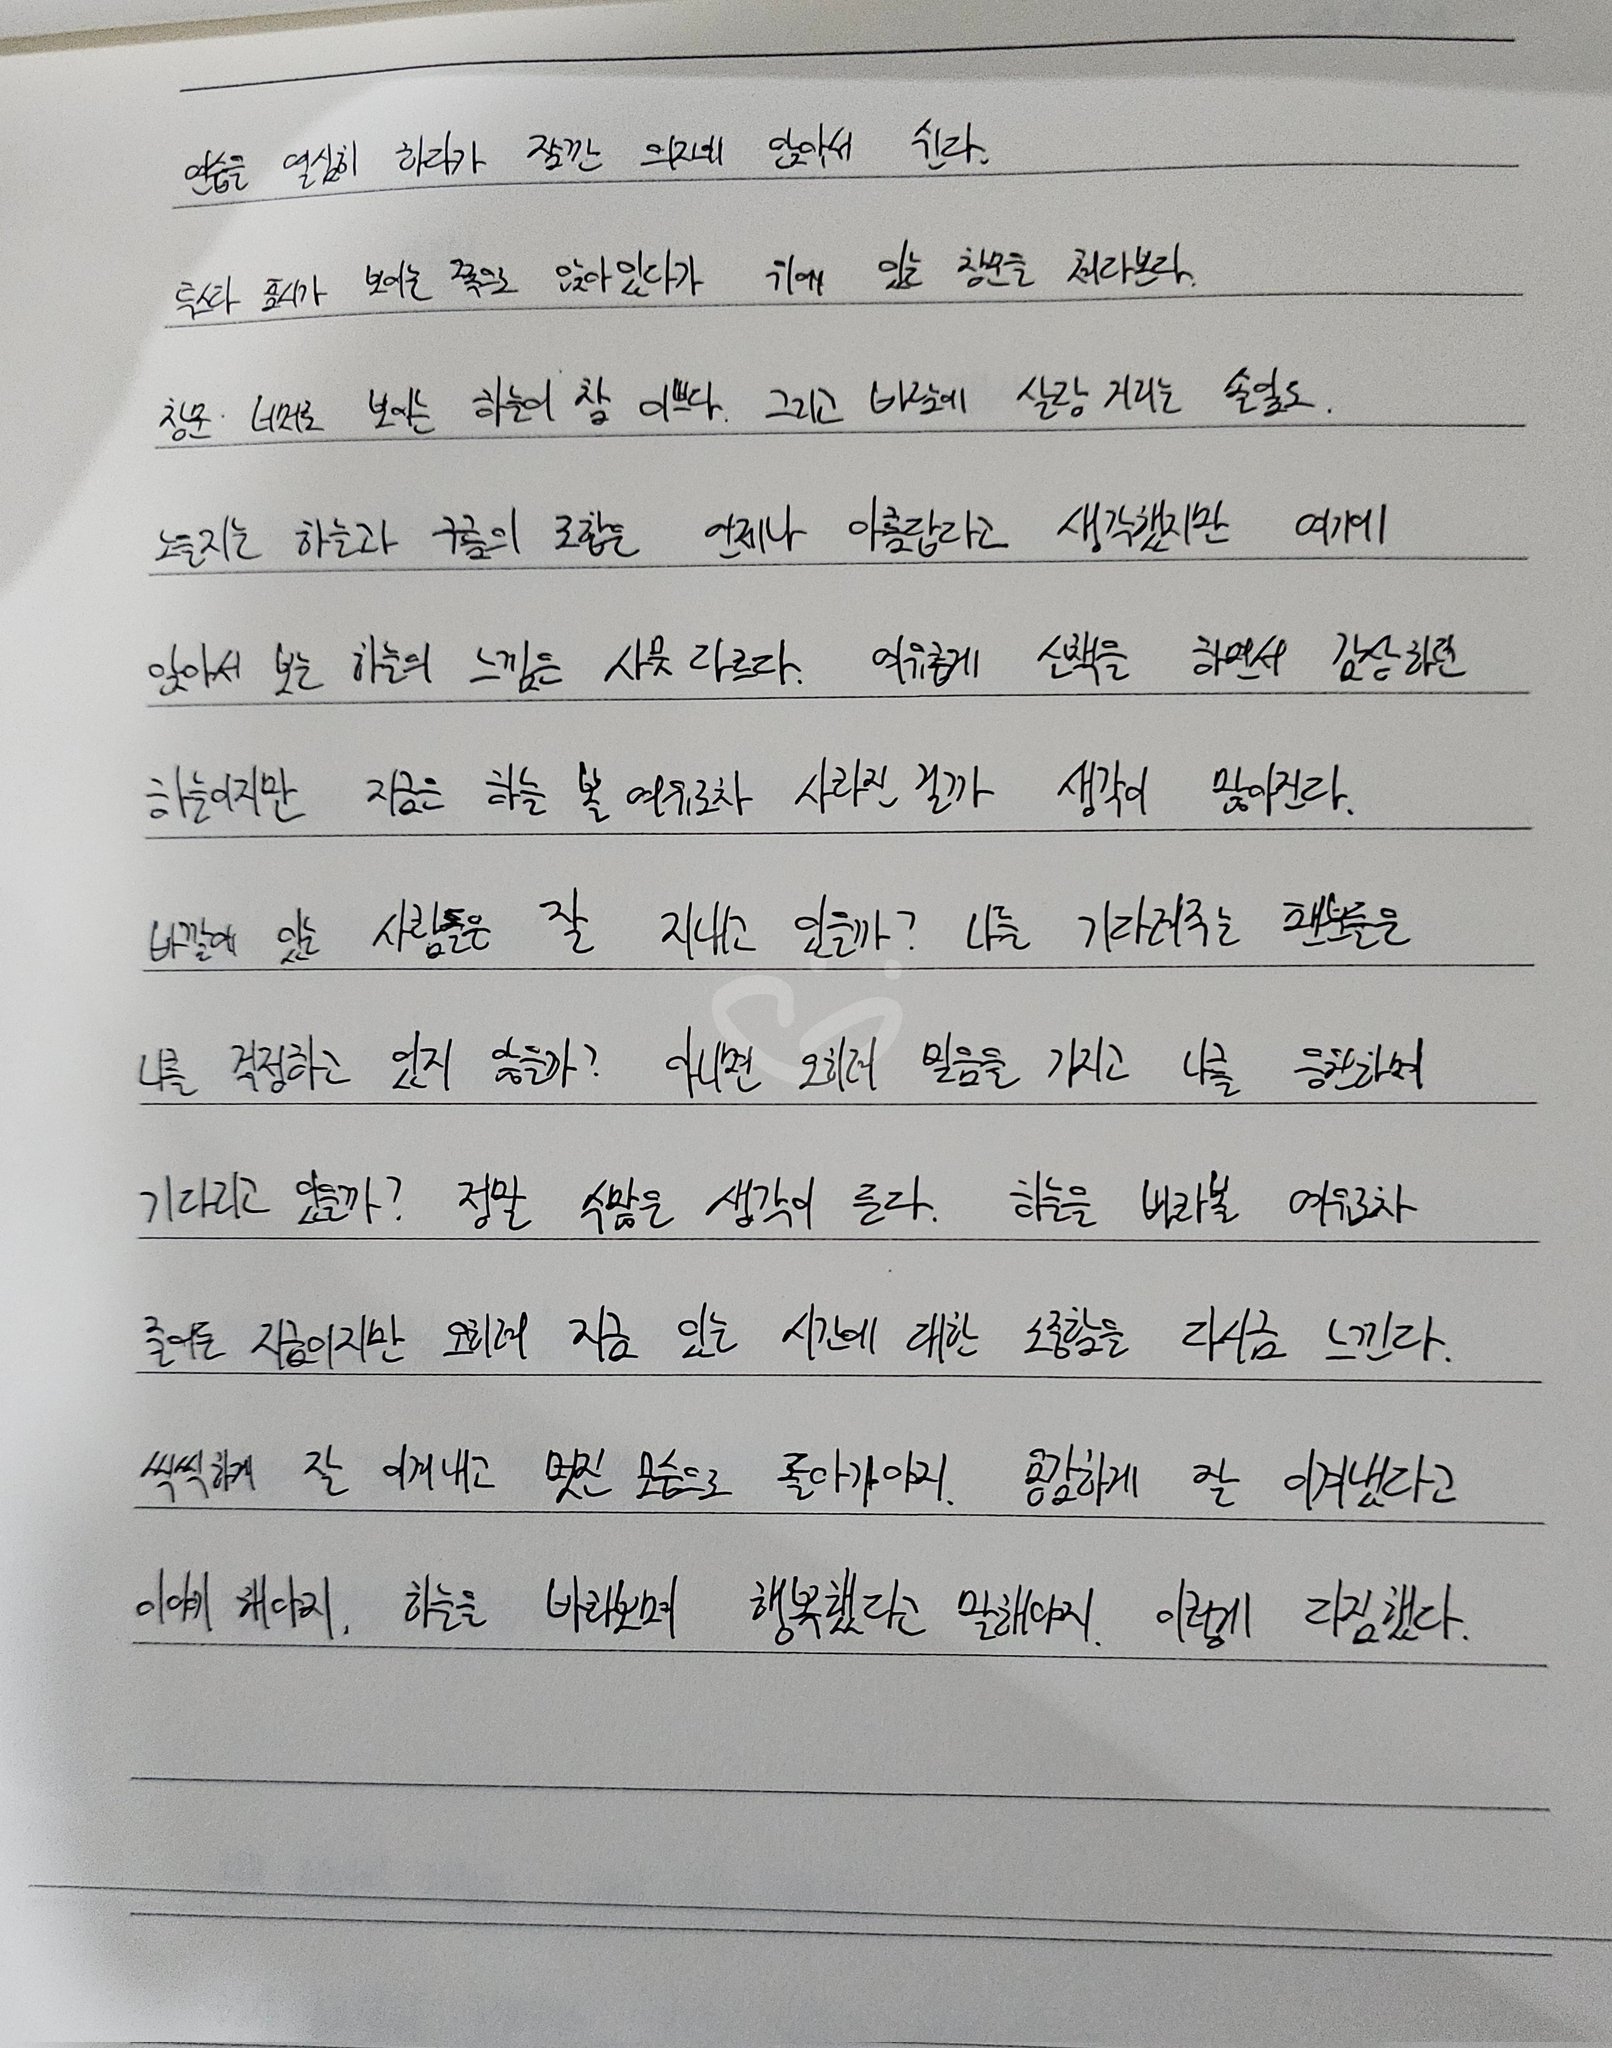 연습을 열심히 하다가 잠깐 의자에 앉아서 쉰다.
투스타 표시가 보이는 쪽으로 앉아있다가 위에 있는 창문을 쳐다본다.
창문 너머로 보이는 하늘이 참 이쁘다. 그리고 바람에 살랑 거리는 손일도.
노을지는 하늘과 구름의 조합은 언제나 아름답다고 생각했지만 여기에
앉아서 보는 하늘의 느낌은 사뭇 다르다. 여유롭게 산책을 하면서 감상하던
하늘이지만 지금은 하늘 볼 여유조차 사라진 걸까 생각이 많아진다.
바깥에 있는 사람들은 잘 지내고 있을까? 나를 기다려주는 팬분들은
나를 걱정하고 있지 않을까? 아니면 오히려 믿음을 가지고 나를 응원하며
기다리고 있을까? 정말 수많은 생각이 든다. 하늘을 바라볼 여유조차
줄어든 지금이지만 오히려 지금 있는 시간에 대한 소중함을 다시금 느낀다.
씩씩하게 잘 이겨내고 멋진 모습으로 돌아가야지. 용감하게 잘 이겨냈다고
이야기 해야지. 하늘을 바라보며 행복했다고 말해야지. 이렇게 다짐했다.